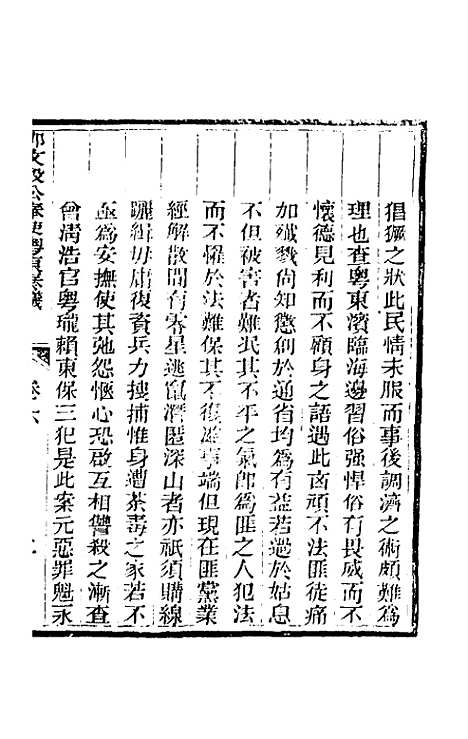 猖獗之狀此民情未服而事後調濟之術頗難爲
理也查粤東濱臨海邊習俗强悍俗有畏威而不
懷德見利而不顧身之語遇此凾頑不法匪徒痛
加殲戮尙知懲創於通省均爲有益若過於姑息
不但被害者難泯其不平之氣卽爲匪之人犯法
而不懼於法難保其不復滋事端但現在匪黨業
經解散間有零星逃竄潛匿深山者亦祇須購線
躧緝毋庸復資兵力搜捕惟身遭荼毒之家若不
亟爲安撫使其弛怨愜心恐啟互相讐殺之漸查
曾淸浩官粤瓏賴東保三犯是此案元惡罪魁永
文毅公
使粤
卷六